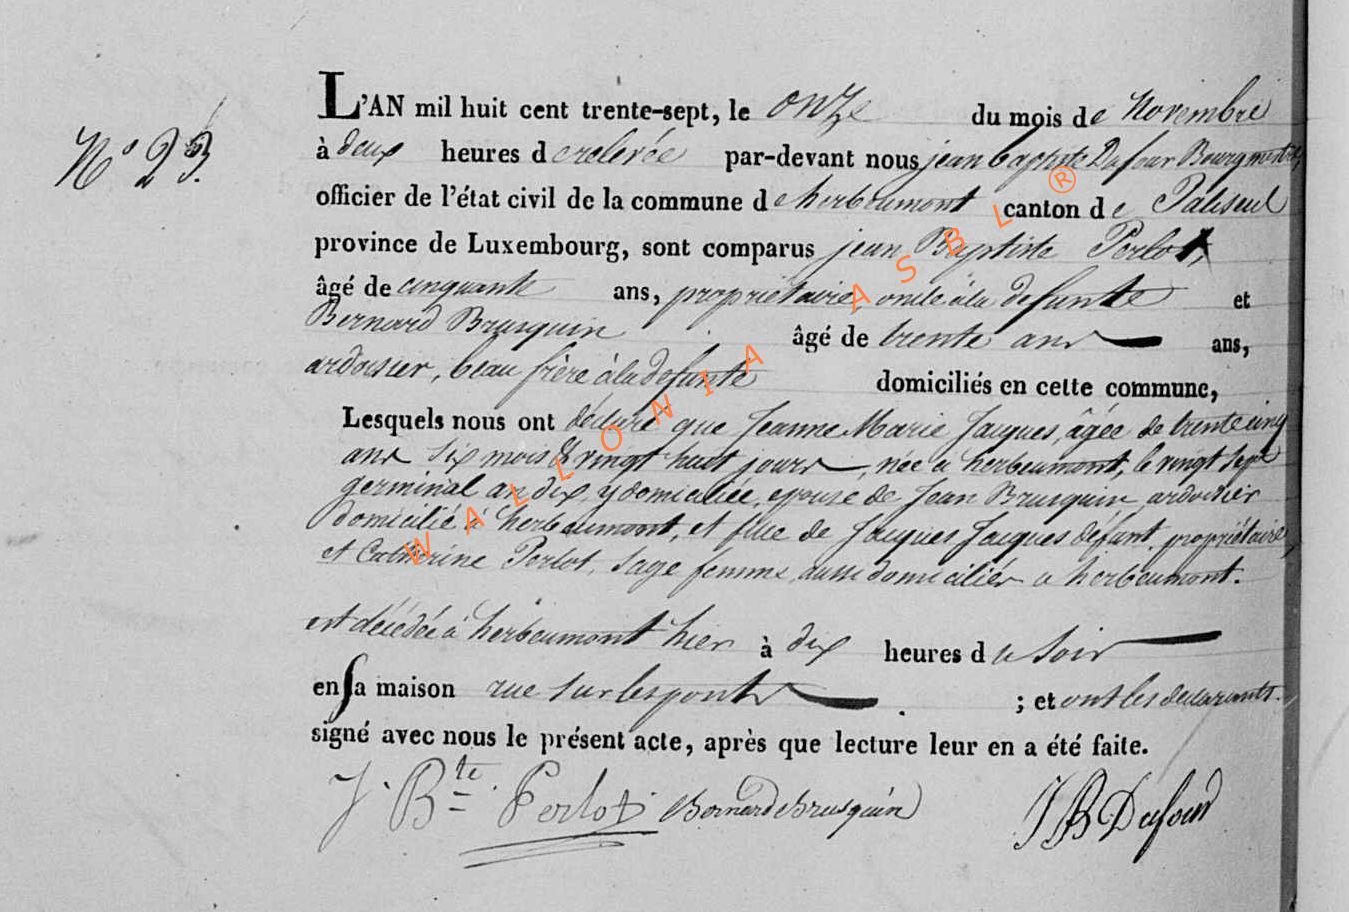 N° 23.
L'AN mil huit cent trente-sept, le onze du mois de Novembre
à deux heures de relevée par-devant nous jean baptiste Dufour Bourgmestre,
officier de l'état civil de la commune de herbeumont canton de Paliseul
province de Luxembourg, sont comparus jean Baptiste Perlot,
âgé de cinquante ans, propriétaire oncle à la defunte et
Bernard Brusquin âgé de trente ans ans,
ardoisier, beau frère à la defunte domiciliés en cette commune,
Lesquels nous ont déclaré que Jeanne Marie Jacques, âgée de trente cinq
ans six mois & vingt huit jours, née a herbeumont, le vingt sept
germinal an dix, y domiciliée, epouse de Jean Brusquin, ardoisier
domicilié à herbeumont, et fille de Jacques Jacques défunt, propriétaire,
et Catherine Perlot, sage femme, aussi domiciliés a herbeumont.
est décédée à herbeumont hier à dix heures du soir
en sa maison rue sur les ponts ; et ont les déclarants
signé avec nous le présent acte, après que lecture leur en a été faite.
J. Bte. Perlot Bernard brusquin JB Dufour
WALLONIA ASBL ®